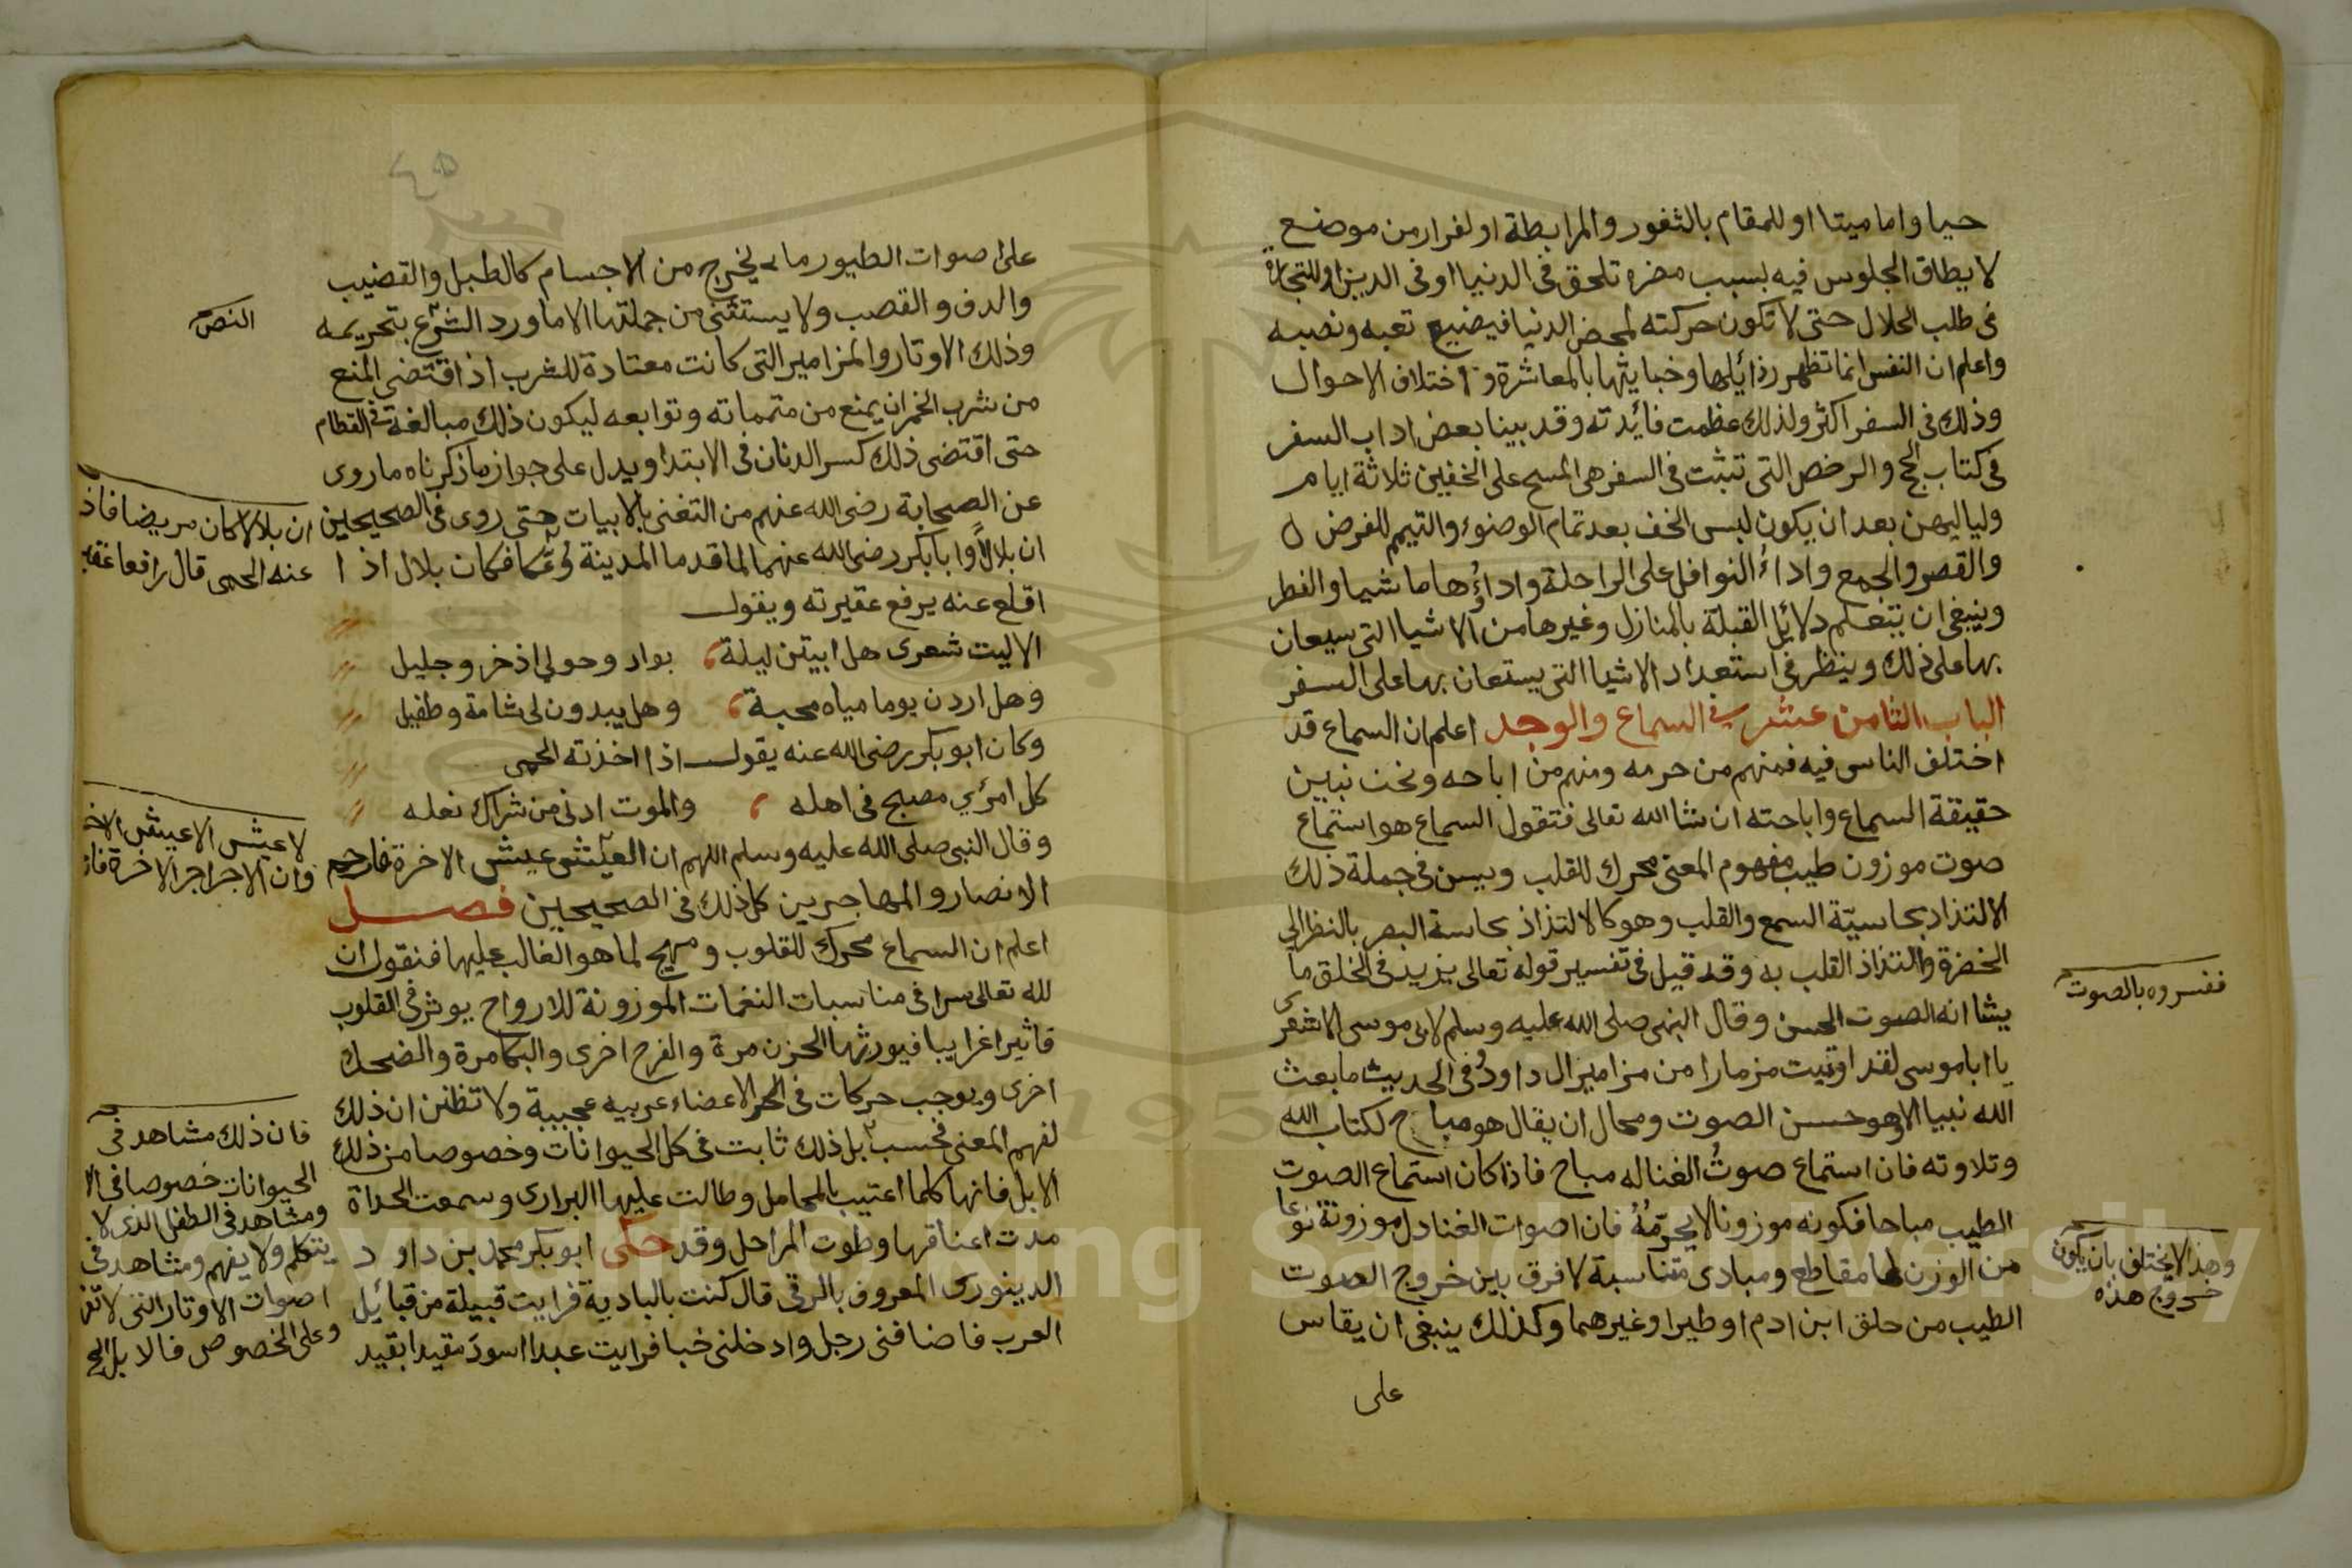 حيا واما ميتا او للمقام بالثغور والمرابطة او لفرار من موضع
لا يطاق الجلوس فيه بسبب مضره تلحق في الدنيا او في الدين او للتجارة
في طلب الحلال حتى لا تكون حركته لمحض الدنيا فيضيع تعبه ونصبه
واعلم ان النفس انما تظهر رذائلها وخبايثها بالمعاشرة واختلاف الاحوال
وذلك في السفر اكثر ولذلك عظمت فائدته وقد بينا بعض اداب السفر
في كتاب الحج والرخص التي تثبت في السفر هي المسح على الخفين ثلاثة ايام
ولياليهن بعد ان يكون لبس الخف بعد تمام الوضوء والتيمم للفرض
والقصر والجمع واداء النوافل على الراحلة واداؤها ماشيا والفطر
وينبغي ان يتعلم دلائل القبلة بالمنازل وغيرها من الاشيا التي سيعان
بها على ذلك وينظر في استعداد الاشيا التي يستعان بها على السفر
الباب الثامن عشر في السماع والوجد اعلم ان السماع قد
اختلف الناس فيه فمنهم من حرمه ومنهم من اباحه ونحن نبين
حقيقة السماع واباحته ان شا الله تعالى فنقول السماع هو استماع
صوت موزون طيب مفهوم المعنى محرك للقلب وليس في جملة ذلك
الا لتذاد بحاسيّة السمع والقلب وهو كالالتذاذ بحاسة البصر بالنظر الى
الخضرة والتذاذ القلب به وقد قيل في تفسير قوله تعالى يزيد في الخلق ما
يشا انه الصوت الحسن وقال النبي صلى الله عليه وسلم لابي موسى الاشعرى
يا ابا موسى لقد اوتيت مزمارا من مزامير ال داود وفي الحديث ما بعث
الله نبيا الا وهو حسن الصوت ومحال ان يقال هو مباح لكتاب الله
وتلاوته فان استماع صوت الغنا له مباح فاذا كان استماع الصوت
الطيب مباحا فكونه موزونا لا يحرّمُهُ فان اصوات العنادل موزونة نوعا
من الوزن لها مقاطع ومبادى متناسبة لا فرق بين خروج الصوت
الطيب من حلق ابن ادم او طيرا وغيرهما وكذلك ينبغي ان يقاس
على
ففسروه بالصوت
وهذا لا يختلف بان يكون
خروج هذه
٤٥
على اصوات الطيور ما يخرج من الاجسام كالطبل والقضيب
والدف والقصب ولا يستثنى من جملتها الا ما ورد الشرع بتحريمه
وذلك الاوتار والمزامير التي كانت معتادة للشرب اذ اقتضى المنع
من شرب الخمر ان يمنع من متمماته وتوابعه ليكون ذلك مبالغة في الفطام
حتى اقتضى ذلك كسر الدنان في الابتدا ويدل على جواز ما ذكرناه ما روى
عن الصحابة رضى الله عنهم من التغنى بالابيات حتى روى في الصحيحين
ان بلالا وابا بكر رضى الله عنهما لما قدما المدينة وعكا فكان بلال اذا
اقلع عنه يرفع عقيرته ويقول
الا ليت شعرى هل ابيتن ليلة بواد وحولي اذخر وجليل
وهل اردن يوما مياه مجنة وهل يبدون لى شامة وطفيل
وكان ابو بكر رضى الله عنه يقول اذا اخذته الحمى
كل امرئ مصبح في اهله والموت ادنى من شراك نعله
وقال النبي صلى الله عليه وسلم اللهم ان العيش عيش الاخرة فارحم
الانصار والمهاجرين كل ذلك في الصحيحين فصل
اعلم ان السماع محرك للقلوب ومهيج لما هو الغالب عليها فنقول ان
لله تعالى سرا في مناسبات النغمات الموزونة للارواح يوثر في القلوب
تاثيرا غرايبا فيورثها الحزن مرة والفرح اخرى والبكا مرة والضحك
اخرى ويوجب حركات في الاعضاء غريبه عجيبة ولا تظنن ان ذلك
لفهم المعنى فحسب بل ذلك ثابت في كل الحيوانات وخصوصا من ذلك
الابل فانها كلما اعتيب بالمحامل وطالت عليها البرارى وسمعت الحداة
مدت اعناقها وطوت المراحل وقد حكى ابو بكر محمد بن داود
الدينورى المعروف بالرقى قال كنت بالبادية فرايت قبيلة من قبائل
العرب فاضافنى رجل وادخلنى خبا فرايت عبدا اسود مقيدا بقيد
النص
ان بلالا كان مريضا فاذ
عنه الحمى قال رافعا عقير
لا عيش الا عيش الاخ
وان الاجر اجر الاخرة فا
فان ذلك مشاهد في
الحيوانات خصوصا في الا
ومشاهد في الطفل الذى لا
يتكلم ولا يفهم ومشاهد في
اصوات الاوتار التي لا تفه
وعلى الخصوص فالابل
King Saud University
195